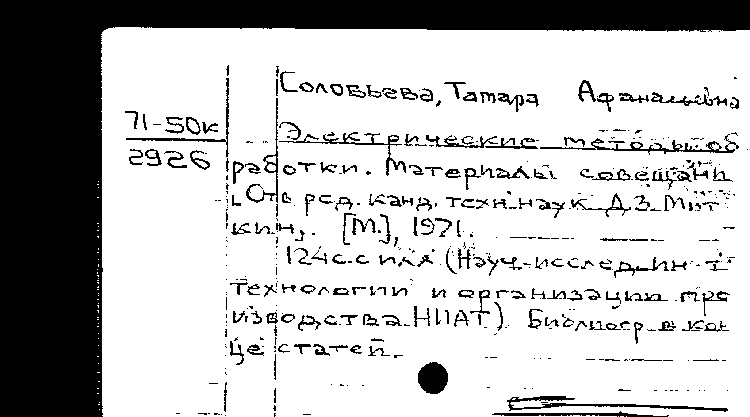 Соловьева, Тамара Афанасьевна
71-50к
Электрические методы об
2926
работки. Материалы совещани
[Отв ред. канд. техн. наук Д.З. Мит
кин]. [М.], 1971.
124 с. с илл (Науч.-исслед. ин-т
технологии и организации про
изводства НИАТ) Библиогр в кон
це статей.